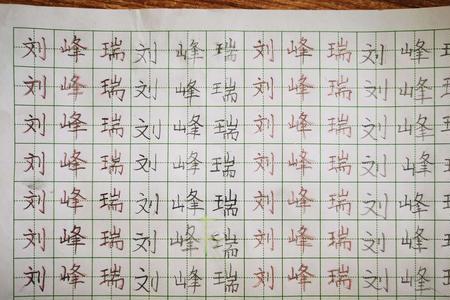 刘峰瑞刘峰瑞刘峰瑞刘峰
刘峰瑞刘峰瑞刘峰瑞刘峰
刘峰瑞刘峰瑞刘峰瑞刘峰
刘峰瑞刘峰瑞刘峰瑞刘峰
刘峰瑞刘峰瑞刘峰瑞刘峰
刘峰瑞刘峰瑞刘峰瑞刘峰
刘峰瑞刘峰瑞刘峰瑞刘峰